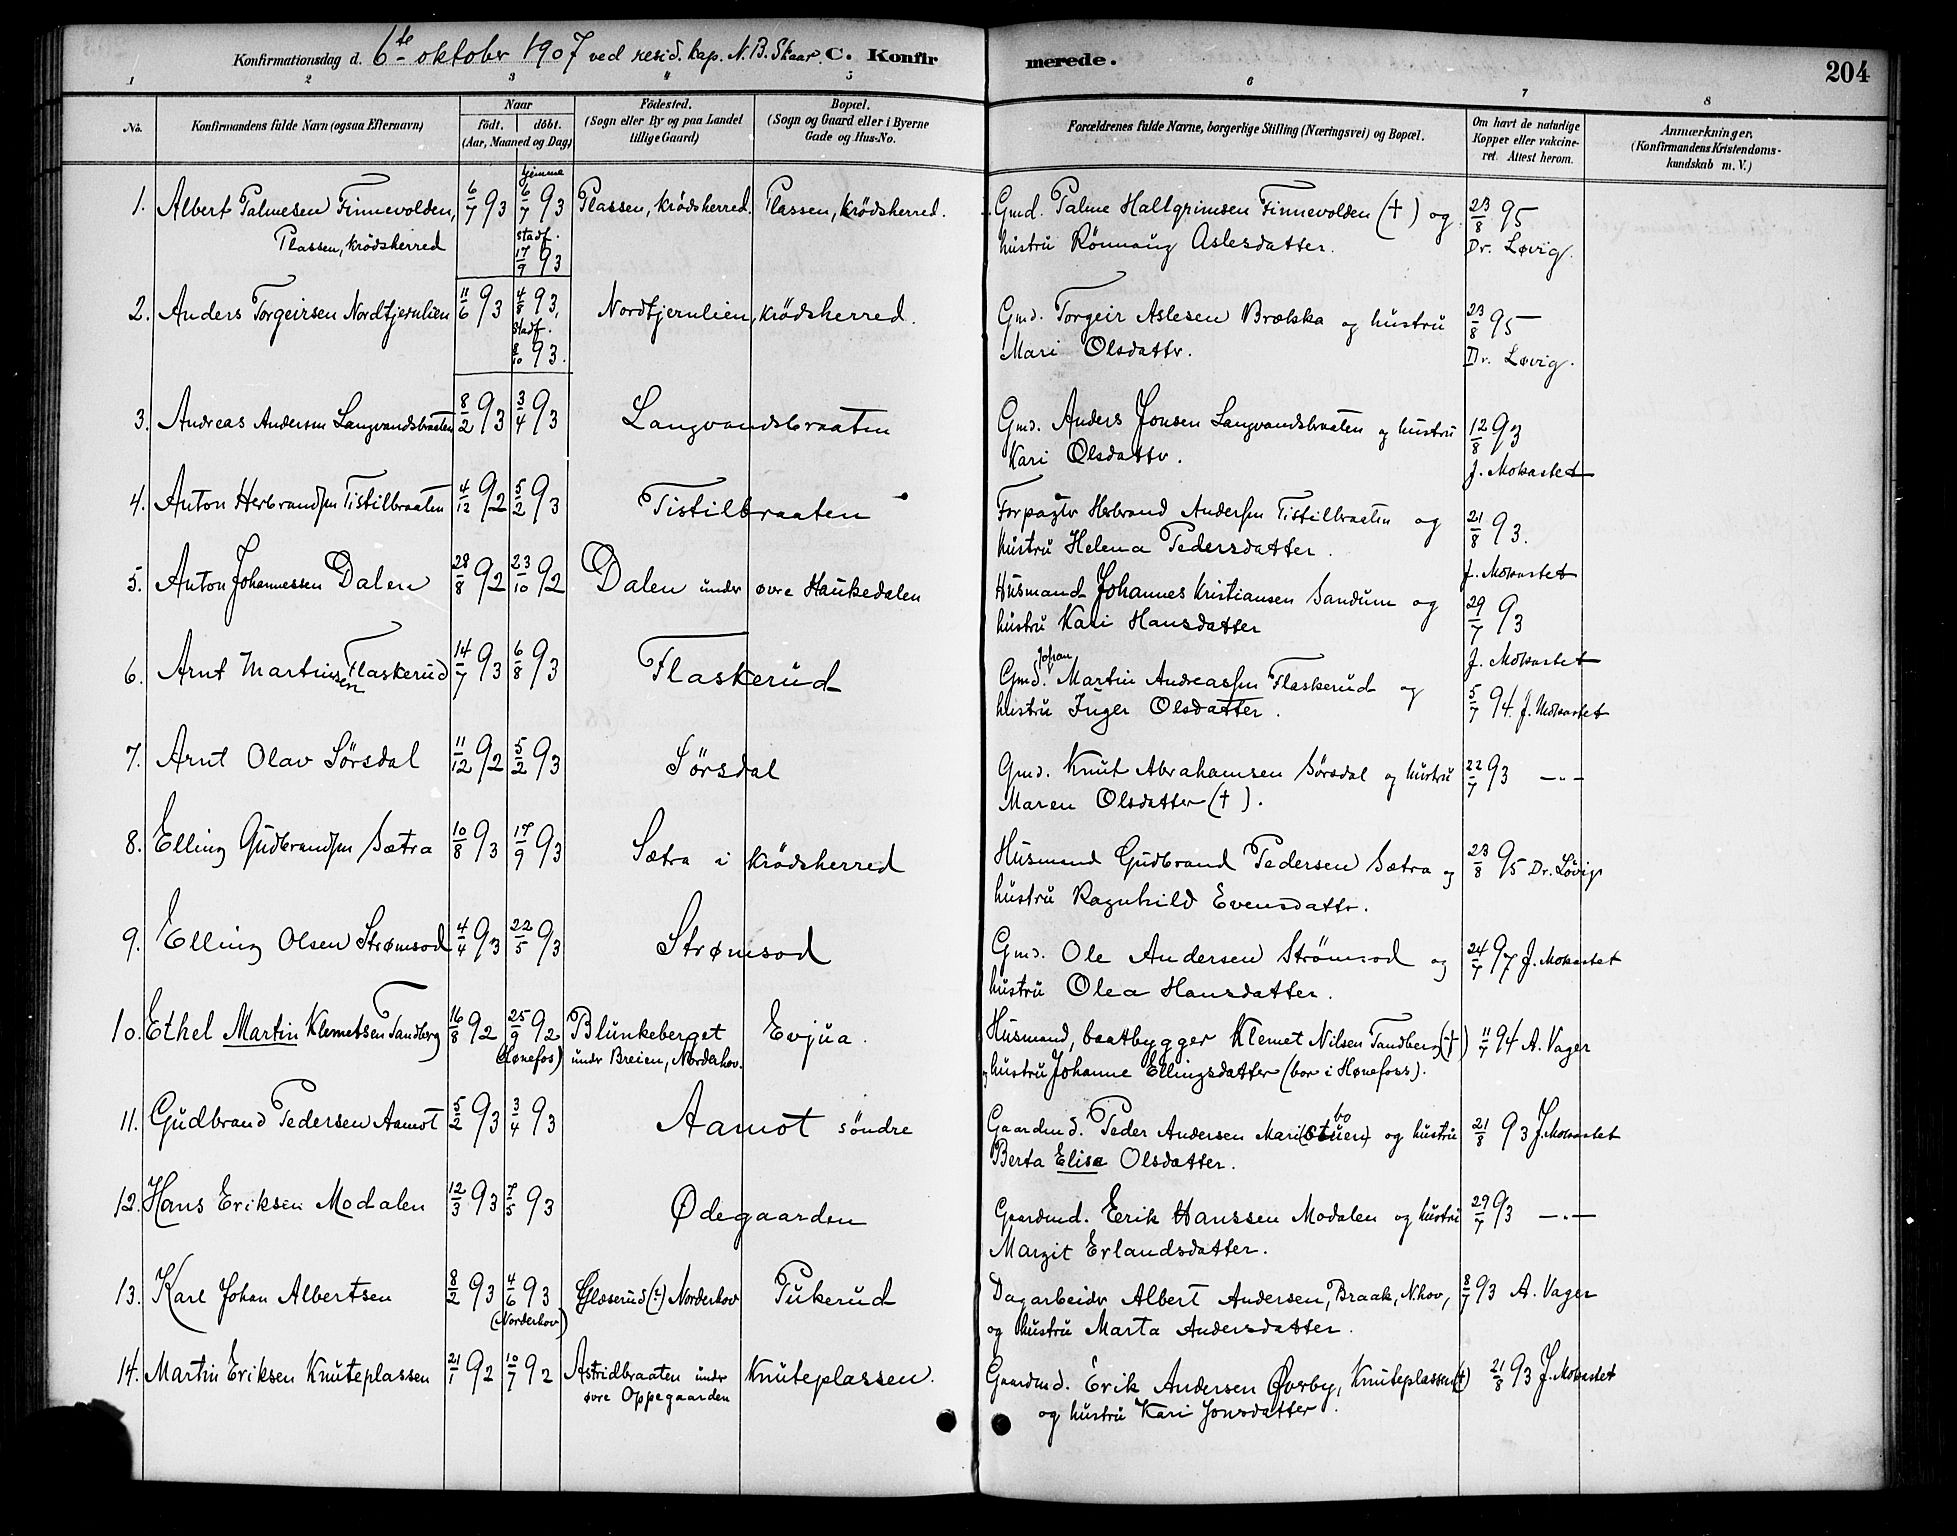 Konfirmationsdag d. 6te oktober 1907 ved resid. kap. N. B. Skaar. C. Konfirmerede. 204
1 2 3 4 5 6 7 8
No. Konfirmandens fulde Navn (ogsaa Efternavn) Naar födt. döbt. (Aar, Maaned og Dag) Födested. (Sogn eller By og paa Landet tillige Gaard) Bopæl. (Sogn og Gaard eller i Byerne Gade og Hus-No. Forældrenes fulde Navne, borgerlige Stilling (Næringsvei) og Bopæl. Om havt de naturlige Kopper eller vakcineret. Attest herom. Anmærkninger. (Konfirmandens Kristendomskundskab m. V.)
1. Albert Palmesen Finnevolden, Plassen, Krödsherred 6/7 93 hjemme 6/7 93 stadf. 17/9 93 Plassen, Krödsherred. Plassen, Krödsherred. Gmd. Palme Hallgrimsen Finnevolden (+) og
hustru Rönnaug Aslesdatter. 23/8 95 Dr. Løvig.
2. Anders Torgeirsen Nordtjernlien 11/6 93 4/8 93, stadf. 8/10 93. Nordtjernlien, Krödsherred. Gmd. Torgeir Aslesen Brælska og hustru
Mari Olsdattr. 23/8 95 Dr. Løvig.
3. Andreas Andersen Langvandsbraaten 8/2 93 3/4 93 Langvandsbraaten Gmd. Anders Jonsen Langvandsbraaten og hustru
Kari Olsdattr. 12/8 93 J. Mokastet
4. Anton Herbrandsen Tistilbraaten 4/12 92 5/2 93 Tistilbraaten Forpagtr Herbrand Andersen Tistilbraaten og
hustru Helena Pedersdatter. 21/8 93. J. Mokastet
5. Anton Johannessen Dalen 28/8 92 23/10 92 Dalen undr øvre Haukedalen Husmand Johannes Kristiansen Sandum og
hustru Kari Hansdatter 29/7 93 J. Mokastet
6. Arnt Martinsen Flaskerud 14/7 93 6/8 93 Flaskerud Gmd. Johan Martin Andreassen Flaskerud og
hustru Inger Olsdatter. 5/7 94. J. Mokastet
7. Arnt Olav Sörsdal 11/12 92 5/2 93 Sörsdal Gmd. Knut Abrahamsen Sörsdal og hustru
Maren Olsdatter (+). 22/7 93 —"—
8. Elling Gudbrandsen Sætra 10/8 93 17/9 93 Sætra i Krödsherred Husmand Gudbrand Pedersen Sætra og
hustru Ragnhild Evensdattr. 23/8 95 Dr. Løvig
9. Elling Olsen Strømsod 4/4 93 22/5 93 Strømsod Gmd. Ole Andersen Strömsod og
hustru Olea Hansdatter. 24/7 97 J. Mokastet
10. Ethel Martin Klemetsen Tandberg 16/8 92 25/9 92 (Hønefos) Blunkeberget undr Breien, Norderhov. Evjua. Husmand, baatbygger Klemet Nilsen Tandberg (+)
og hustru Johanne Ellingsdatter (bor i Hønefoss). 11/7 94 A. Vager
11. Gudbrand Pedersen Aamot 5/2 93 3/4 93 Aamot söndre Gaardmd. Peder Andersen Mari(stuen) bo og hustru
Berta Elise Olsdatter. 21/8 93 J. Mokastet
12. Hans Eriksen Modalen 12/3 93 7/5 93 Ødegaarden Gaardmd. Eerik Hanssen Modalen og hustru
Margit Erlandsdatter. 29/7 93 —"—
13. Karl Johan Albertsen 8/2 93 4/6 93 (Norderhov) Glæserud (?) Norderhov Pukerud Dagarbeidr Albert Andersen, Braak, N.hov,
og hustru Marta Andersdatter. 8/7 93 A. Vager
14. Martin Eriksen Knuteplassen 21/1 92 10/7 92 Astridbraaten undr øvre Oppegaarden Knuteplassen. Gaardmd. Erik Andersen Øverby, Knuteplassen (+)
og hustru Kari Jonsdatter. 21/8 93 J. Mokastet